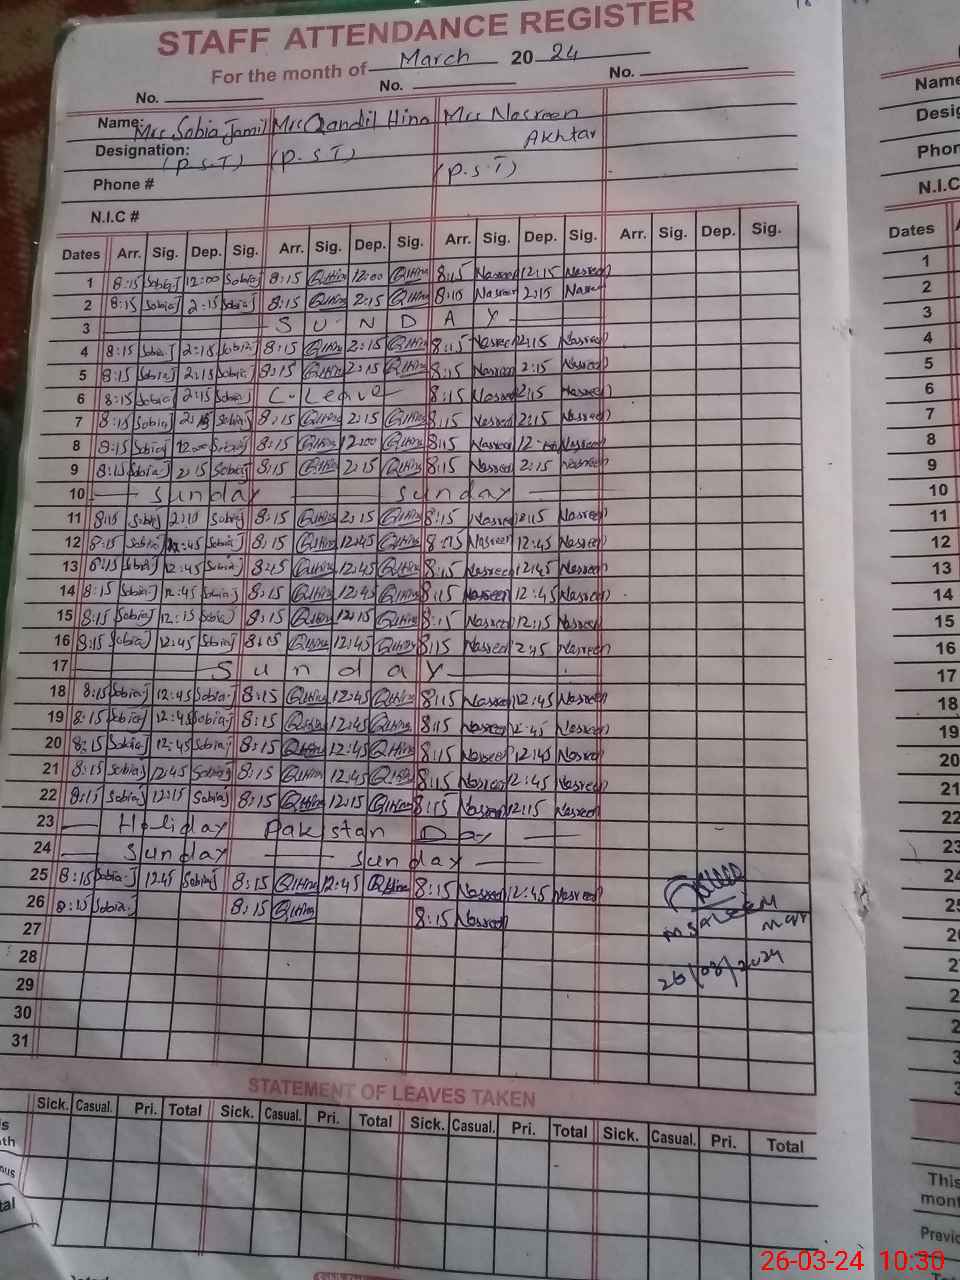 STAFF ATTENDANCE REGISTER
For the month of March 20 24
No. No. No.
Name: Mrs Sobia Jamil Mrs Qandil Hina Mrs Nasreen Akhtar
Designation: (P.S.T) (P.S.T) (P.S.T)
Phone #
N.I.C #
Dates Arr. Sig. Dep. Sig. Arr. Sig. Dep. Sig. Arr. Sig. Dep. Sig. Arr. Sig. Dep. Sig.
1 8:15 Sobia J 12:00 Sobia J 8:15 QHina 12:00 QHina 8:15 Nasreen 12:15 Nasreen
2 8:15 Sobia J 2:15 Sobia J 8:15 QHina 2:15 QHina 8:15 Nasreen 2:15 Nasreen
3 SUNDAY
4 8:15 Sobia J 2:15 Sobia J 8:15 QHina 2:15 QHina 8:15 Nasreen 2:15 Nasreen
5 8:15 Sobia J 2:15 Sobia J 8:15 QHina 2:15 QHina 8:15 Nasreen 2:15 Nasreen
6 8:15 Sobia J 2:15 Sobia J C-Leave 8:15 Nasreen 2:15 Nasreen
7 8:15 Sobia J 2:15 Sobia J 8:15 QHina 2:15 QHina 8:15 Nasreen 2:15 Nasreen
8 8:15 Sobia J 12:00 Sobia J 8:15 QHina 12:00 QHina 8:15 Nasreen Nasreen
9 8:15 Sobia J 2:15 Sobia J 8:15 QHina 2:15 QHina 8:15 Nasreen 2:15 Nasreen
10 Sunday Sunday
11 8:15 Sobia J Sobia J 8:15 QHina 2:15 QHina 8:15 Nasreen 2:15 Nasreen
12 8:15 Sobia J 12:45 Sobia J 8:15 QHina 12:45 QHina 8:15 Nasreen 12:45 Nasreen
13 8:15 Sobia J 12:45 Sobia J 8:15 QHina 12:45 QHina 8:15 Nasreen 12:45 Nasreen
14 8:15 Sobia J 12:45 Sobia J 8:15 QHina 12:45 QHina 8:15 Nasreen 12:45 Nasreen
15 8:15 Sobia J 12:15 Sobia J 8:15 QHina 12:15 QHina 8:15 Nasreen 12:15 Nasreen
16 8:15 Sobia J 12:45 Sobia J 8:15 QHina 12:45 QHina 8:15 Nasreen 2:45 Nasreen
17 Sunday
18 8:15 Sobia J 12:45 Sobia J 8:15 QHina 12:45 QHina 8:15 Nasreen 12:45 Nasreen
19 8:15 Sobia J 12:45 Sobia J 8:15 QHina 12:45 QHina 8:15 Nasreen 12:45 Nasreen
20 8:15 Sobia J 12:45 Sobia J 8:15 QHina 12:45 QHina 8:15 Nasreen 12:45 Nasreen
21 8:15 Sobia J 12:45 Sobia J 8:15 QHina 12:45 QHina 8:15 Nasreen 12:45 Nasreen
22 8:15 Sobia J 12:15 Sobia J 8:15 QHina 12:15 QHina 8:15 Nasreen 12:15 Nasreen
23 Holiday Pakistan Day
24 Sunday Sunday
25 8:15 Sobia J 12:45 Sobia J 8:15 QHina 12:45 QHina 8:15 Nasreen 12:45 Nasreen
26 8:15 Sobia J 8:15 QHina 8:15 Nasreen
27
28
29
30
31
M SALEEM
26/03/2024
STATEMENT OF LEAVES TAKEN
Sick. Casual. Pri. Total Sick. Casual. Pri. Total Sick. Casual. Pri. Total Sick. Casual. Pri. Total
Name
Phon
N.I.C
Dates
1
2
3
4
5
6
7
8
9
10
11
12
13
14
15
16
17
18
19
20
21
22
23
This
mont
Previo
26-03-24 10:30